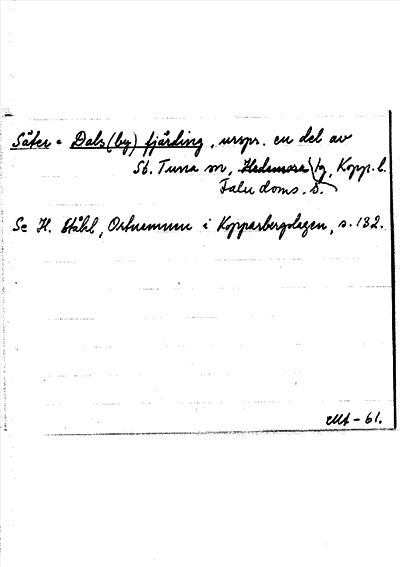 Säter = Dals(by) fjärding, urspr. en del av
St. Tuna sn, Hedemora tg, Kopp. l.
Falu doms. s.
Se H. Ståhl, Ortnamnen i Kopparbergslagen, s. 132.
-61.